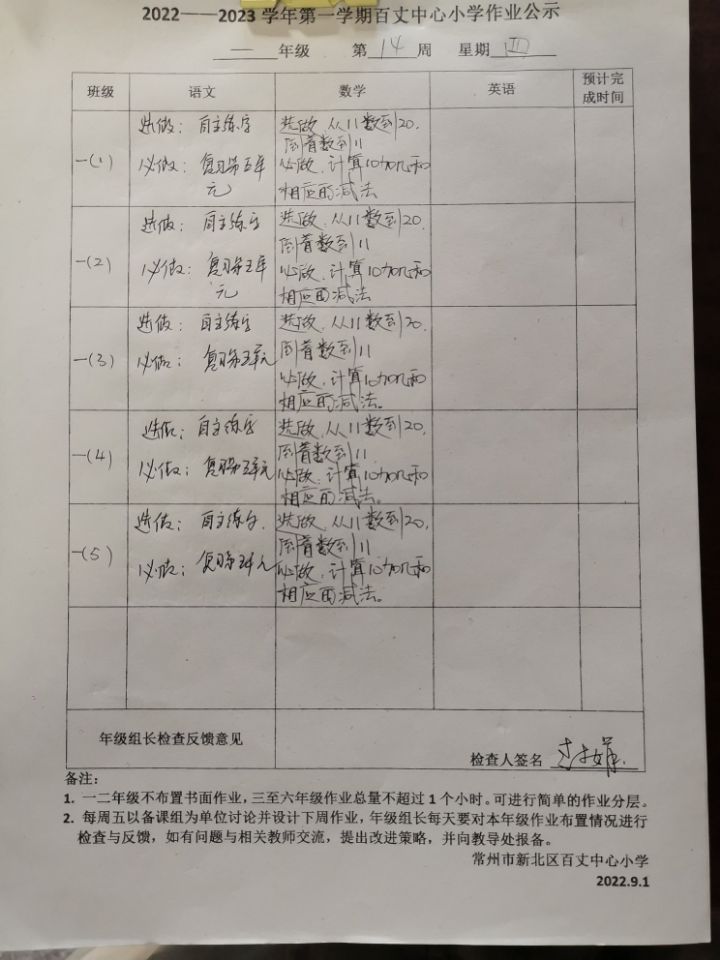 2022——2023学年第一学期百丈中心小学作业公示
一 年级 第 14 周 星期 四
班级 语文 数学 英语 预计完
成时间
一(1)
选做：自主练字
必做：复习第五单
元
选做．从11数到20，
倒着数到11
必做．计算10加几和
相应的减法
一(2)
选做：自主练字
必做：复习第五单
元
选做．从11数到20，
倒着数到11
必做．计算10加几和
相应的减法
一(3)
选做：自主练字
必做：复习第五单元
选做．从11数到20，
倒着数到11
必做．计算10加几和
相应的减法。
一(4)
选做：自主练字
必做：复习第五单元
选做．从11数到20，
倒着数到11
必做．计算10加几和
相应的减法。
一(5)
选做：自主练字．
必做：复习第五单元
选做．从11数到20，
倒着数到11
必做．计算10加几和
相应的减法。
年级组长检查反馈意见
检查人签名
备注：
1. 一二年级不布置书面作业，三至六年级作业总量不超过1个小时。可进行简单的作业分层。
2. 每周五以备课组为单位讨论并设计下周作业，年级组长每天要对本年级作业布置情况进行
检查与反馈，如有问题与相关教师交流，提出改进策略，并向教导处报备。
常州市新北区百丈中心小学
2022.9.1